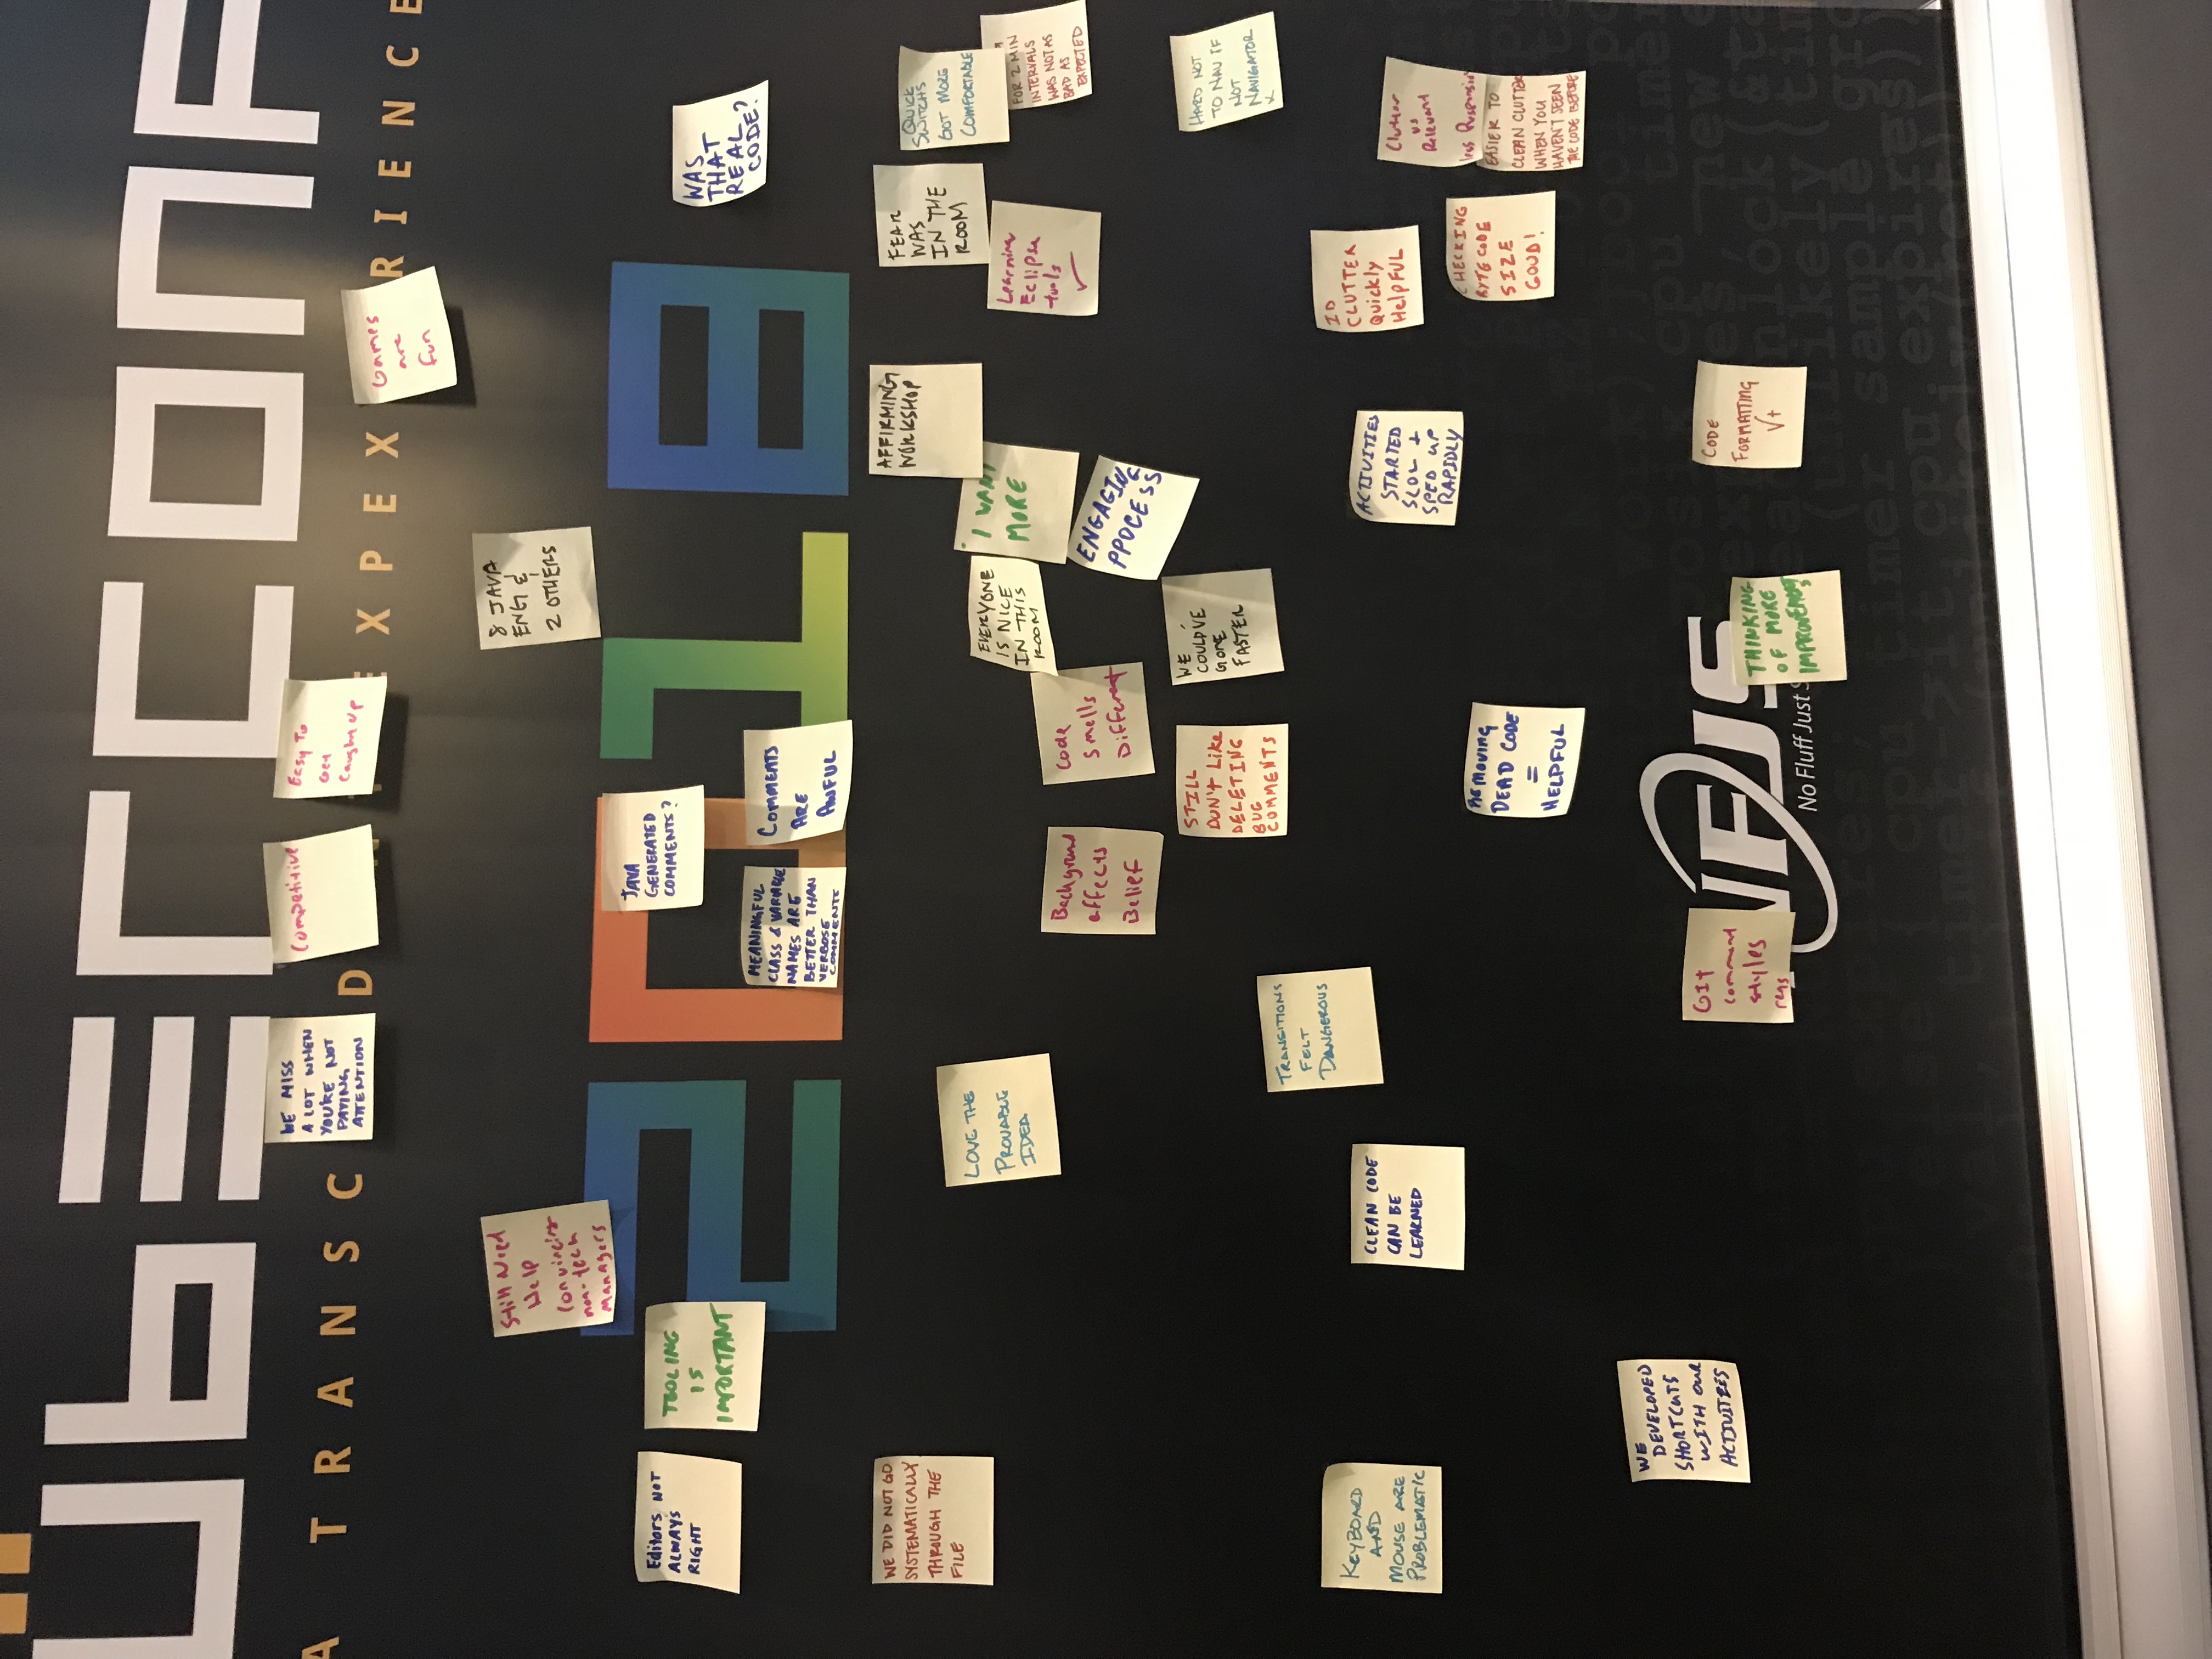 ÜBERCONF
A TRANSC
D
EXPEX
RIENCE
WE MISS
A LOT WHEN
YOU'RE NOT
PAYING
ATTENTION
Competitive
Easy To
Get
Caught up
Games
are
fun
Still Need
Help
Convincing
non-tech
Managers
8 JAVA
ENG &
2 OTHERS
2018
Editors NOT
ALWAYS
RIGHT
TOOLING
IS
IMPORTANT
JAVA
GENERATED
COMMENTS?
WAS
THAT
REAL
CODE?
MEANINGFUL
CLASS & VARIABLE
NAMES ARE
BETTER THAN
VERBOSE
COMMENTS
COMMENTS
ARE
AWFUL
WE DID NOT GO
SYSTEMATICALLY
THROUGH THE
FILE
AFFIRMING
WORKSHOP
FEAR
WAS
IN THE
ROOM
QUICK
SWITCHS
GOT MORE
COMFORTABLE
LOVE THE
PROVABLE
IDEA
EVERYONE
IS NICE
IN THIS
ROOM
I WANT
MORE
Learning
Eclipse
tools
✓
FOR 2 MIN
INTERVALS
WAS NOT AS
BAD AS
EXPECTED
Background
affects
Belief
Code
Smells
Different
ENGAGING
PPOCESS
STILL
DON'T Like
DELETING
BUG
COMMENTS
WE
COULD'VE
GONE
FASTER
HARD NOT
TO NAV IF
NOT
NAVIGATOR
TRANSITIONS
FELT
DANGEROUS
KEYBOARD
AND
MOUSE ARE
PROBLEMATIC
CLEAN CODE
CAN BE
LEARNED
ACTIVITIES
STARTED
SLOW +
SPED UP
RAPIDLY
ID
CLUTTER
Quickly
HelpFUL
Clutter
vs
Relevant
CHECKING
BYTE CODE
SIZE
GOOD!
EASIER TO
CLEAN CLUTTER
WHEN YOU
HAVEN'T SEEN
THE CODE BEFORE
REMOVING
DEAD CODE
=
HELPFUL
WE
DEVELOPED
SHORTCUTS
WITH OUR
ACTIVITIES
GIt
command
styles
NFJS
No Fluff Just
THINKING
OF MORE
IMPROVEMENTS
CODE
FORMATTING
√+